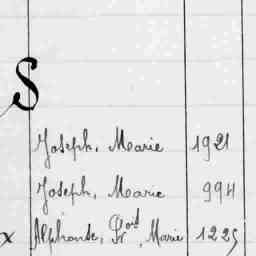 S
Joseph, Marie 1921
Joseph, Marie 994
x Alphonse, Marie 1225